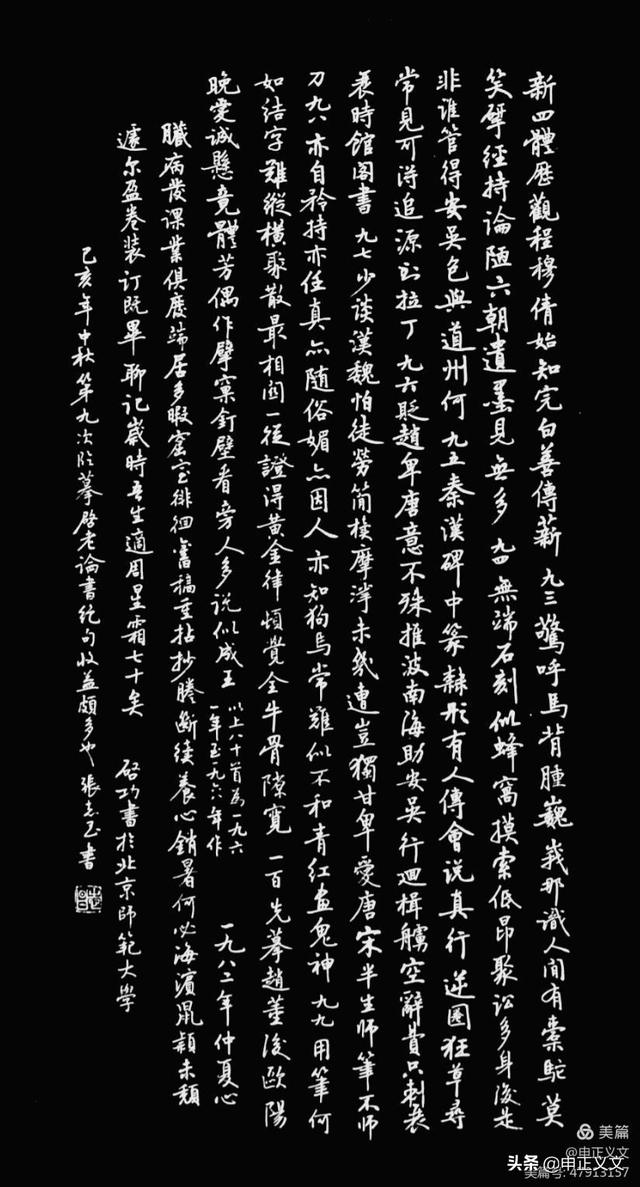 新四體歷觀程穆倩始知完白善傳薪 九三 驚呼馬背腫巍峩那識人間有橐駝莫
笑揅經持論陋六朝遺墨見無多 九四 無端石刻似蜂窩摸索低昂聚訟多身後是
非誰管得安吳包與道州何 九五 秦漢碑中篆隸形有人傳會説真行逆圈狂草尋
常見可得追源到拉丁 九六 貶趙卑唐意不殊推波南海助安吳行迴楫艣空辭費只刺衰
衰時館閣書 九七 少談漢魏怕徒勞簡牘摩挲未幾遭豈獨甘卑愛唐宋半生師筆不師
刀 九八 亦自矜持亦任真亦隨俗媚亦因人亦知狗馬常難似不和青紅畫鬼神 九九 用筆何
如結字難縱橫聚散最相關一從證得黃金律頓覺全牛骨隙寬 一百 先摹趙董後歐陽
晚愛誠懸竟體芳偶作擘窠釘壁看旁人多說似成王 以上八十首為一九六
一年至一九六年作 一九八二年仲夏心
臟病發課業俱廢端居多暇室徘徊舊稿重拈抄謄斷續養心銷暑何必海濱鼠穎未頹
遽尔盈卷裝订既畢聊記歲時吾生適周星霜七十矣 啓功書於北京師範大學
己亥年中秋第九次临摹啓老論書絕句收益頗多也 張志玉書
美篇
@申正义文
头条 @申正义文
美篇号: 47913157